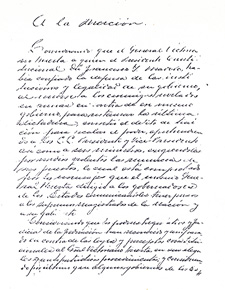 A la nación.
Considerando que el General Victoria-
no Huerta a quien el Presidente Consti-
tucional Don Francisco I. Madero, ha-
bía confiado la defensa de las insti-
tuciones y legalidad de su gobierno,
al
en contra de ese mismo
gobierno, para restaurar la última
dictadura, cometió el delito de trai-
ción para escalar el poder, aprehendien-
do a los C.C. Presidente y Vice-Presidente,
así como a sus Ministros, exigiéndoles
por medios violentos las renuncias de
sus puestos, lo cual está comprobado
por los mensajes que el mismo Gene-
ral Huerta dirigió a los gobernadores
de los Estados comunicándoles tener presos
a los Supremos Magistrados de la Nación y
a su gabinete.
Considerando que los poderes Legis-
lativo y Judicial han reconocido y ampara-
do en contra de las leyes y preceptos constitu-
cionales al General Victoriano Huerta y sus
ilegales y antipatrióticos procedimientos; y
considerando, por último que algunos gobiernos de los Es-